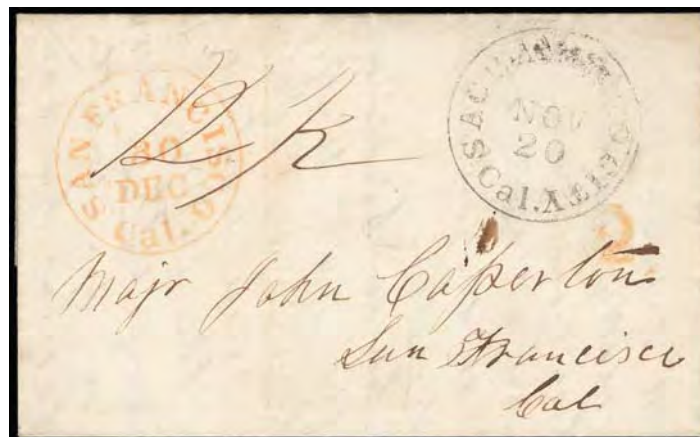 SAN FRANCISCO
30
DEC
Cal.
12½
SACRAMENTO CITY
NOV
20
Cal.
2
Majr John Caperton
San Francisco
Cal